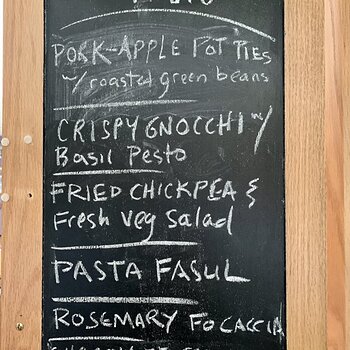 PORK-APPLE POT PIES
w/ roasted green beans
CRISPY GNOCCHI w/
Basil Pesto
FRIED CHICKPEA &
Fresh Veg Salad
PASTA FASUL
ROSEMARY FOCACCIA